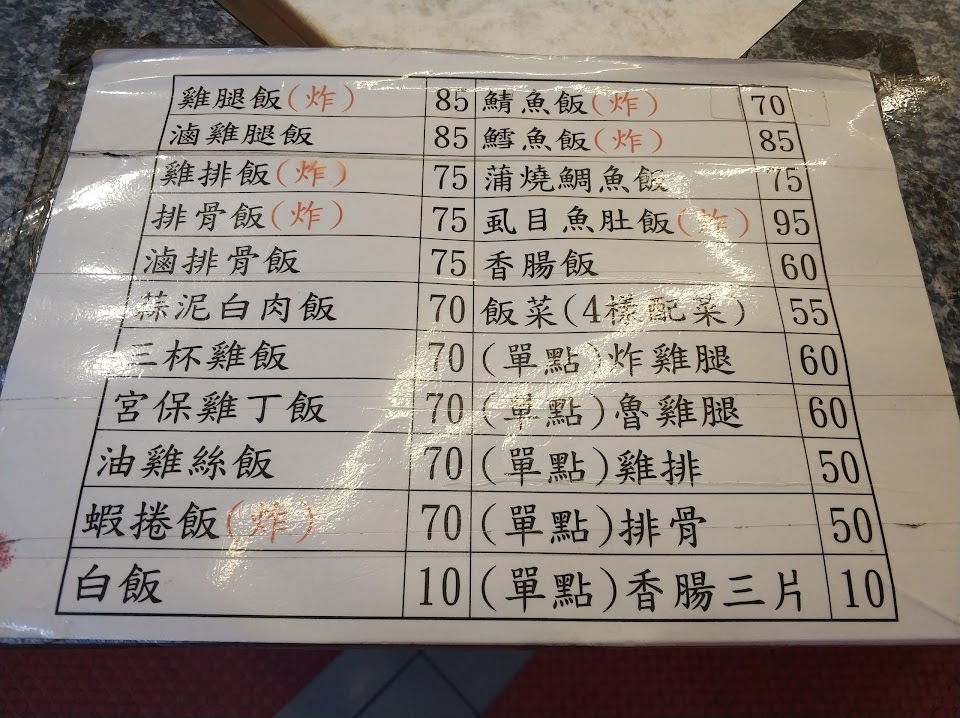 雞腿飯(炸) 85 鯖魚飯(炸) 70
滷雞腿飯 85 鱈魚飯(炸) 85
雞排飯(炸) 75 蒲燒鯛魚飯 75
排骨飯(炸) 75 虱目魚肚飯(炸) 95
滷排骨飯 75 香腸飯 60
蒜泥白肉飯 70 飯菜(4樣配菜) 55
三杯雞飯 70 (單點)炸雞腿 60
宮保雞丁飯 70 (單點)魯雞腿 60
油雞絲飯 70 (單點)雞排 50
蝦捲飯(炸) 70 (單點)排骨 50
白飯 10 (單點)香腸三片 10